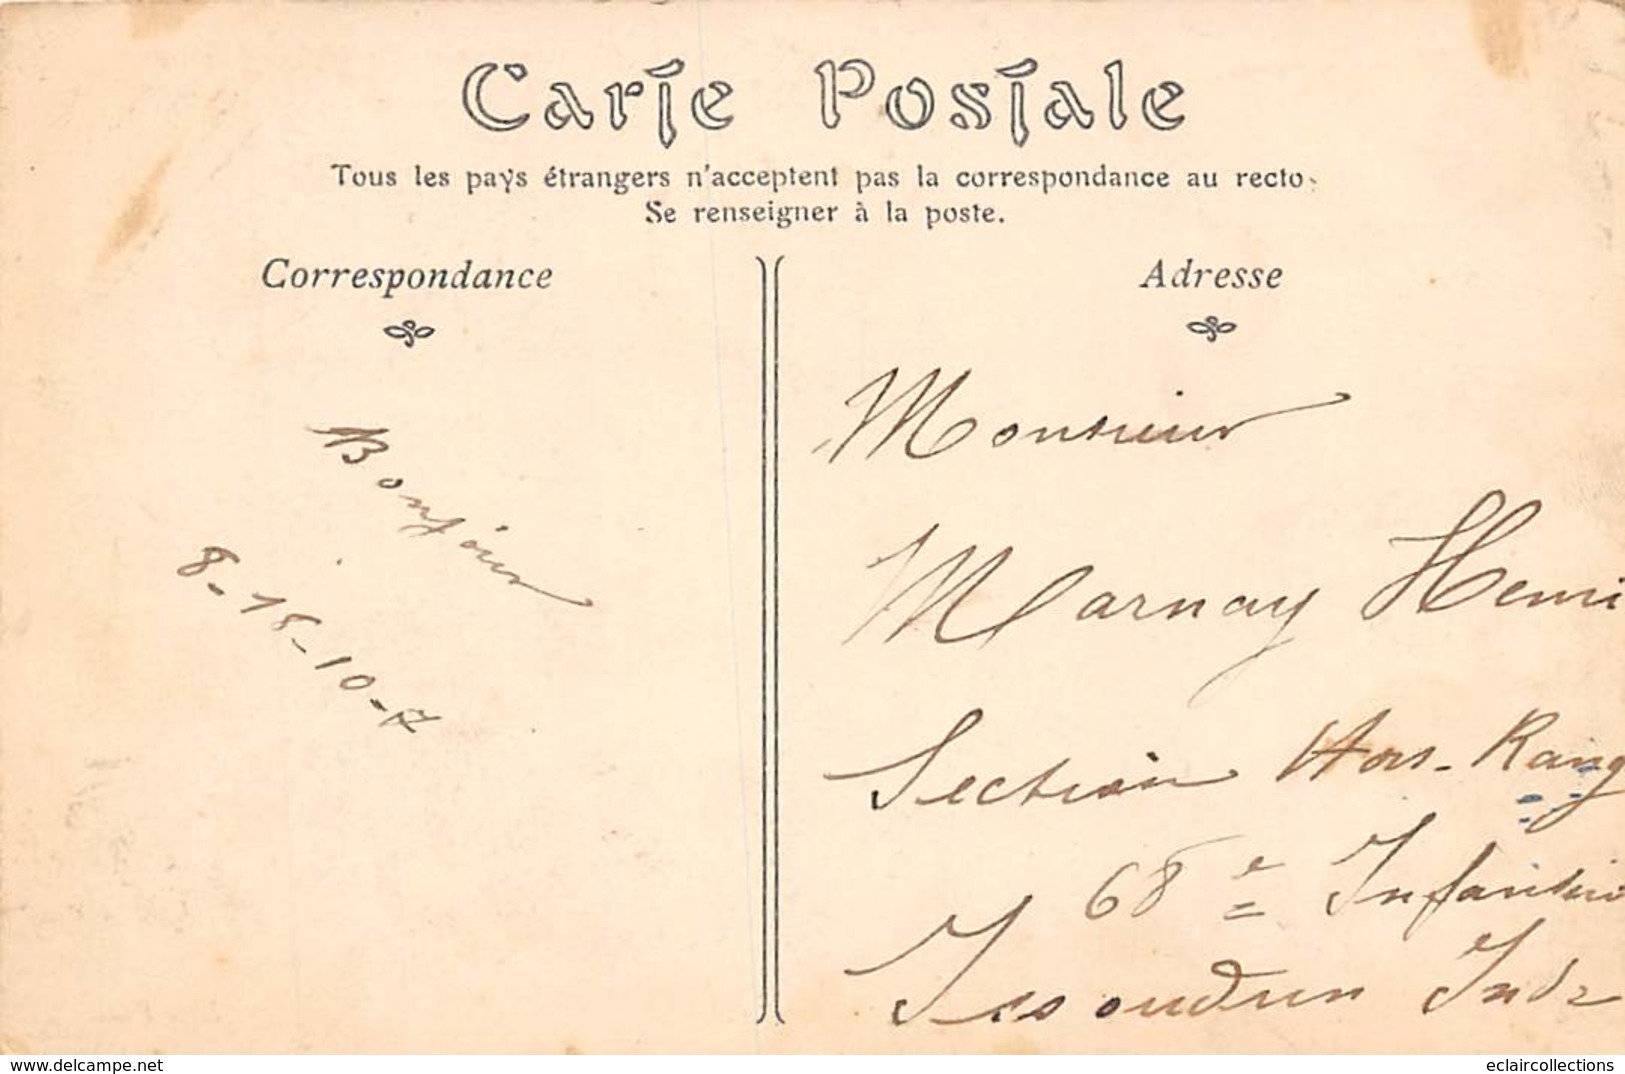 Carte Postale
Tous les pays étrangers n'acceptent pas la correspondance au recto.
Se renseigner à la poste.
Correspondance
Adresse
Bonjour
8-18-10-7
Monsieur
Marnay Henri
Section Hors-Rang
68e Infanterie
Issoudun Indre
www.delcampe.net
eclaircollections